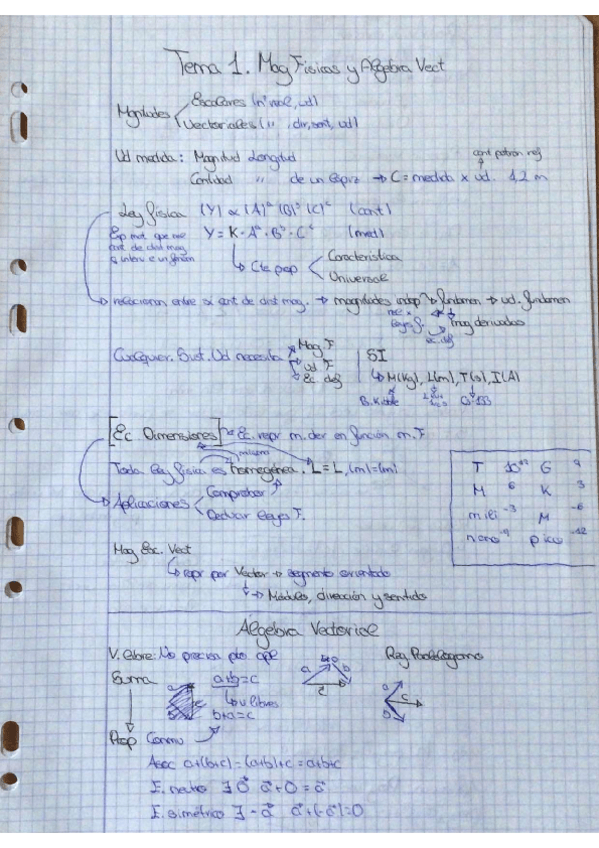 Tema 1. Mag Físicas y Algebra Vect
Magnitudes Escalares (nº real, ud)
Vectoriales ( " , dir, sent, ud)
Ud medida: Magnitud Longitud
cant patron ref
Cantidad " de un lápiz → C = medida x ud. 12 m
Ley física (Y) ∝ (A)ᵃ (B)ᵇ (C)ᶜ (cant)
Y = K · Aᵃ · Bᵇ · Cᶜ (med)
Cte prop Característica
Universal
relacionan entre sí cant de dist mag. → magnitudes indep → fundamen → ud. fundamen
mag derivadas
ec. def
Cualquier Sist. Ud necesita Mag F
Ud F
Ec. def
SI
M(Kg), L(m), T(s), I(A)
[Ec Dimensiones] → Ec. repr m. der en función m. F
Toda ley física es homogénea. L = L, (m) = (m)
Aplicaciones Comprobar
Deducir leyes F.
T 10¹² G 9
M 6 K 3
mili -3 M -6
nano -9 pico -12
Mag Esc. Vect
repr por Vector → segmento orientado
Módulo, dirección y sentido
Álgebra Vectorial
V. libre: No precisa pto apl
Reg Paralelogramo
Suma a+b=c
v libres
b+a=c
a b c
Prop Conmu
Asoc a+(b+c) = (a+b)+c = a+b+c
E. neutro ∃ 0⃗ a⃗ + 0 = a⃗
E. simétrico ∃ -a⃗ a⃗ + (-a⃗) = 0